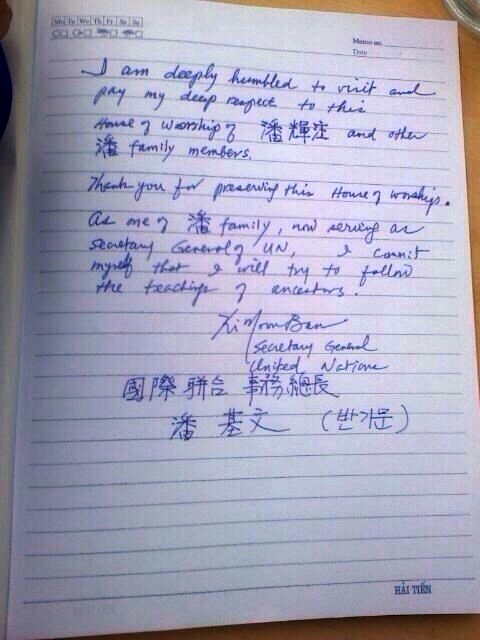 Mo Tu We Th Fr Sa Su
Memo no.
Date
I am deeply humbled to visit and
pay my deep respect to this
House of Worship of 潘輝注 and other
潘 family members.
Thank you for preserving this House of worship.
As one of 潘 family, now serving as
Secretary General of UN, I commit
myself that I will try to follow
the teachings of ancestors.
Ki Moon Ban
Secretary General
United Nations
國際 聯合 事務總長
潘 基文 (반기문)
HẢI TIẾN